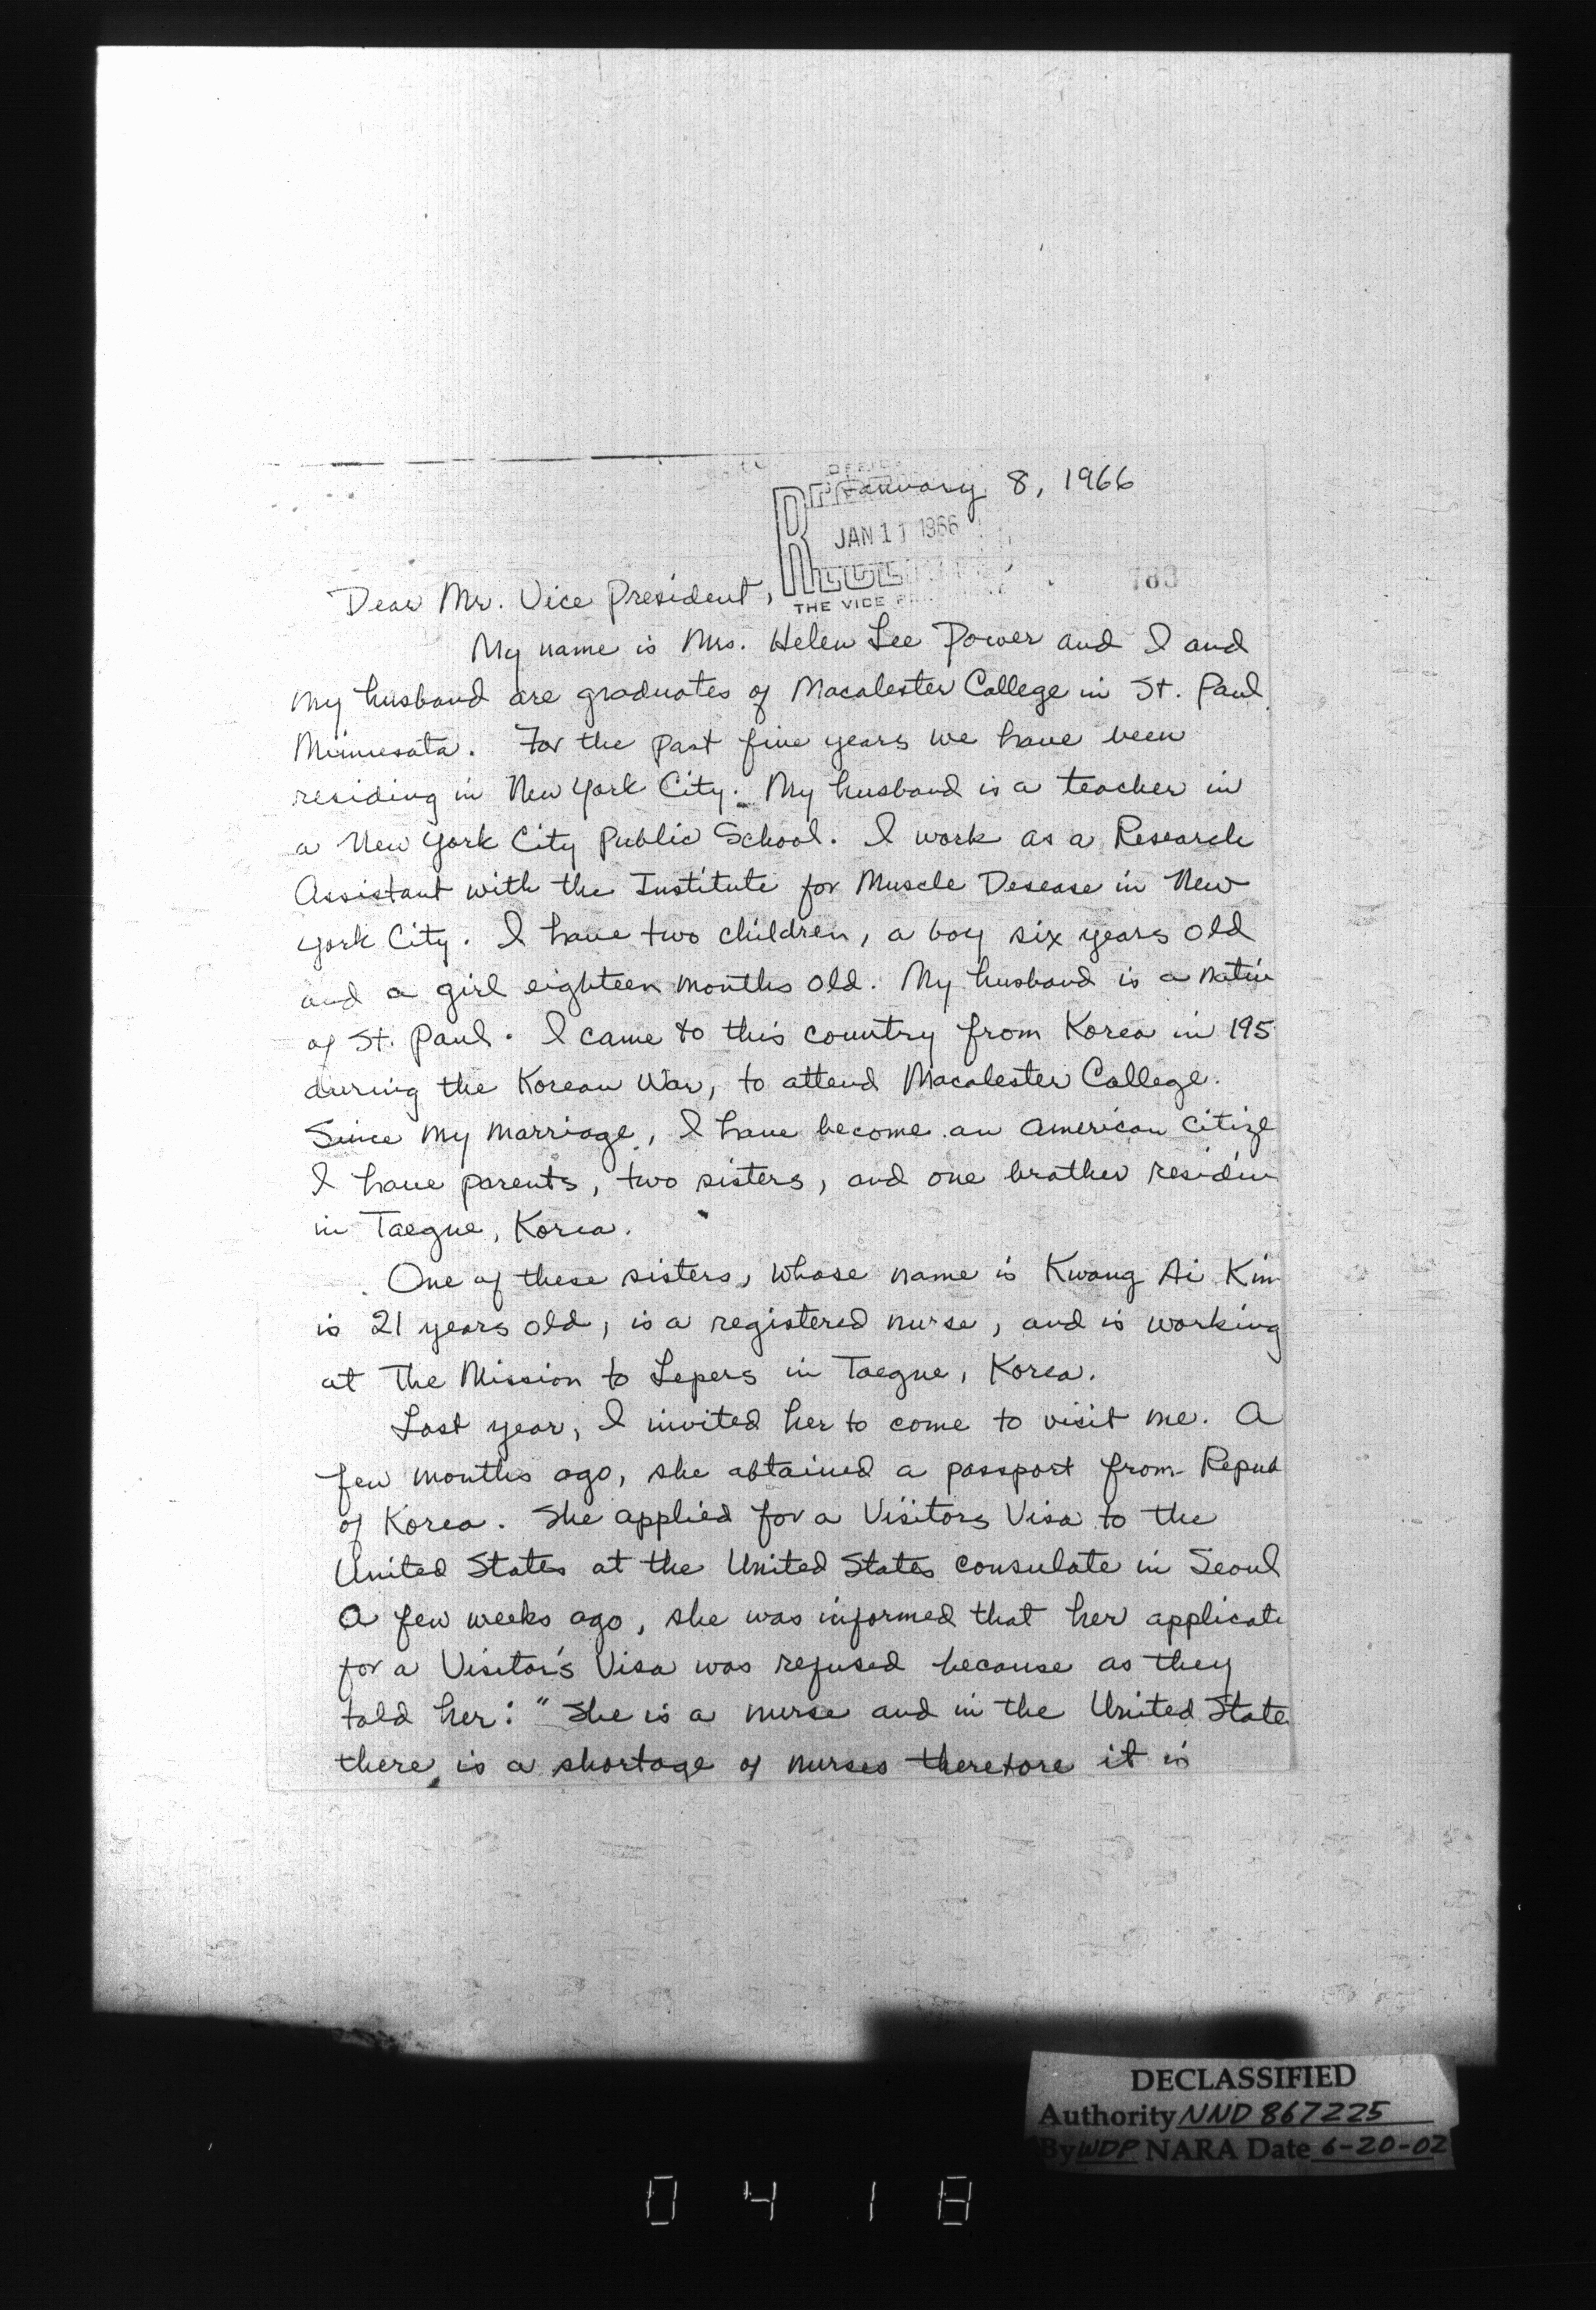 January 8, 1966
OFFICE
JAN 11 1966
THE VICE
783
Dear Mr. Vice President,
My name is Mrs. Helen Lee Power and I and
my husband are graduates of Macalester College in St. Paul
Minnesota. For the past five years we have been
residing in New York City. My husband is a teacher in
a New York City Public School. I work as a Research
Assistant with the Institute for Muscle Desease in New
York City. I have two children, a boy six years old
and a girl eighteen months old. My husband is a nativ
of St. Paul. I came to this country from Korea in 195
during the Korean War, to attend Macalester College.
Since my marriage, I have become an American citize
I have parents, two sisters, and one brother residin
in Taegue, Korea.
One of these sisters, whose name is Kwang Ai Kim
is 21 years old, is a registered nurse, and is working
at The Mission to Lepers in Taegue, Korea.
Last year, I invited her to come to visit me. A
few months ago, she obtained a passport from Repub
of Korea. She applied for a Visitors Visa to the
United States at the United States consulate in Seoul
A few weeks ago, she was informed that her applicati
for a Visitor's Visa was refused because as they
told her: "She is a nurse and in the United State
there is a shortage of nurses therefore it is
DECLASSIFIED
Authority NND 867225
By WDP NARA Date 6-20-02
0 4 1 8